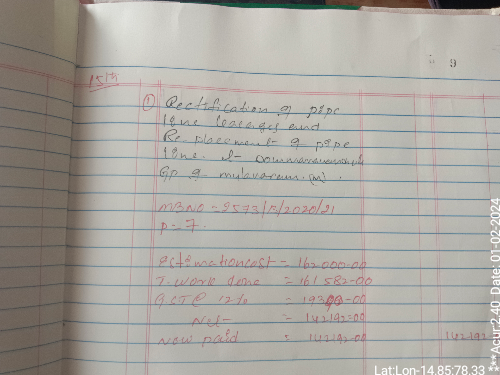 9
15th
① Rectification of pipe
line leakages and
Replacement of pipe
line. at
GP of (M).
MBNO = 9573/B/2020/21
P = 7.
estemation cost = 162000-00
T. work done = 161582-00
GST@ 12% = 19390-00
Net = 142192-00
Now paid = 142192-00 142192
Lat:Lon-14.85:78.33
***Acur:2.40 Date:01-02-2024